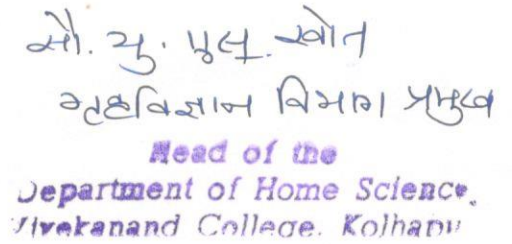 सौ. यु. एस. खोत
गृहविज्ञान विभाग प्रमुख
Head of the
Department of Home Science,
Vivekanand College. Kolhapu